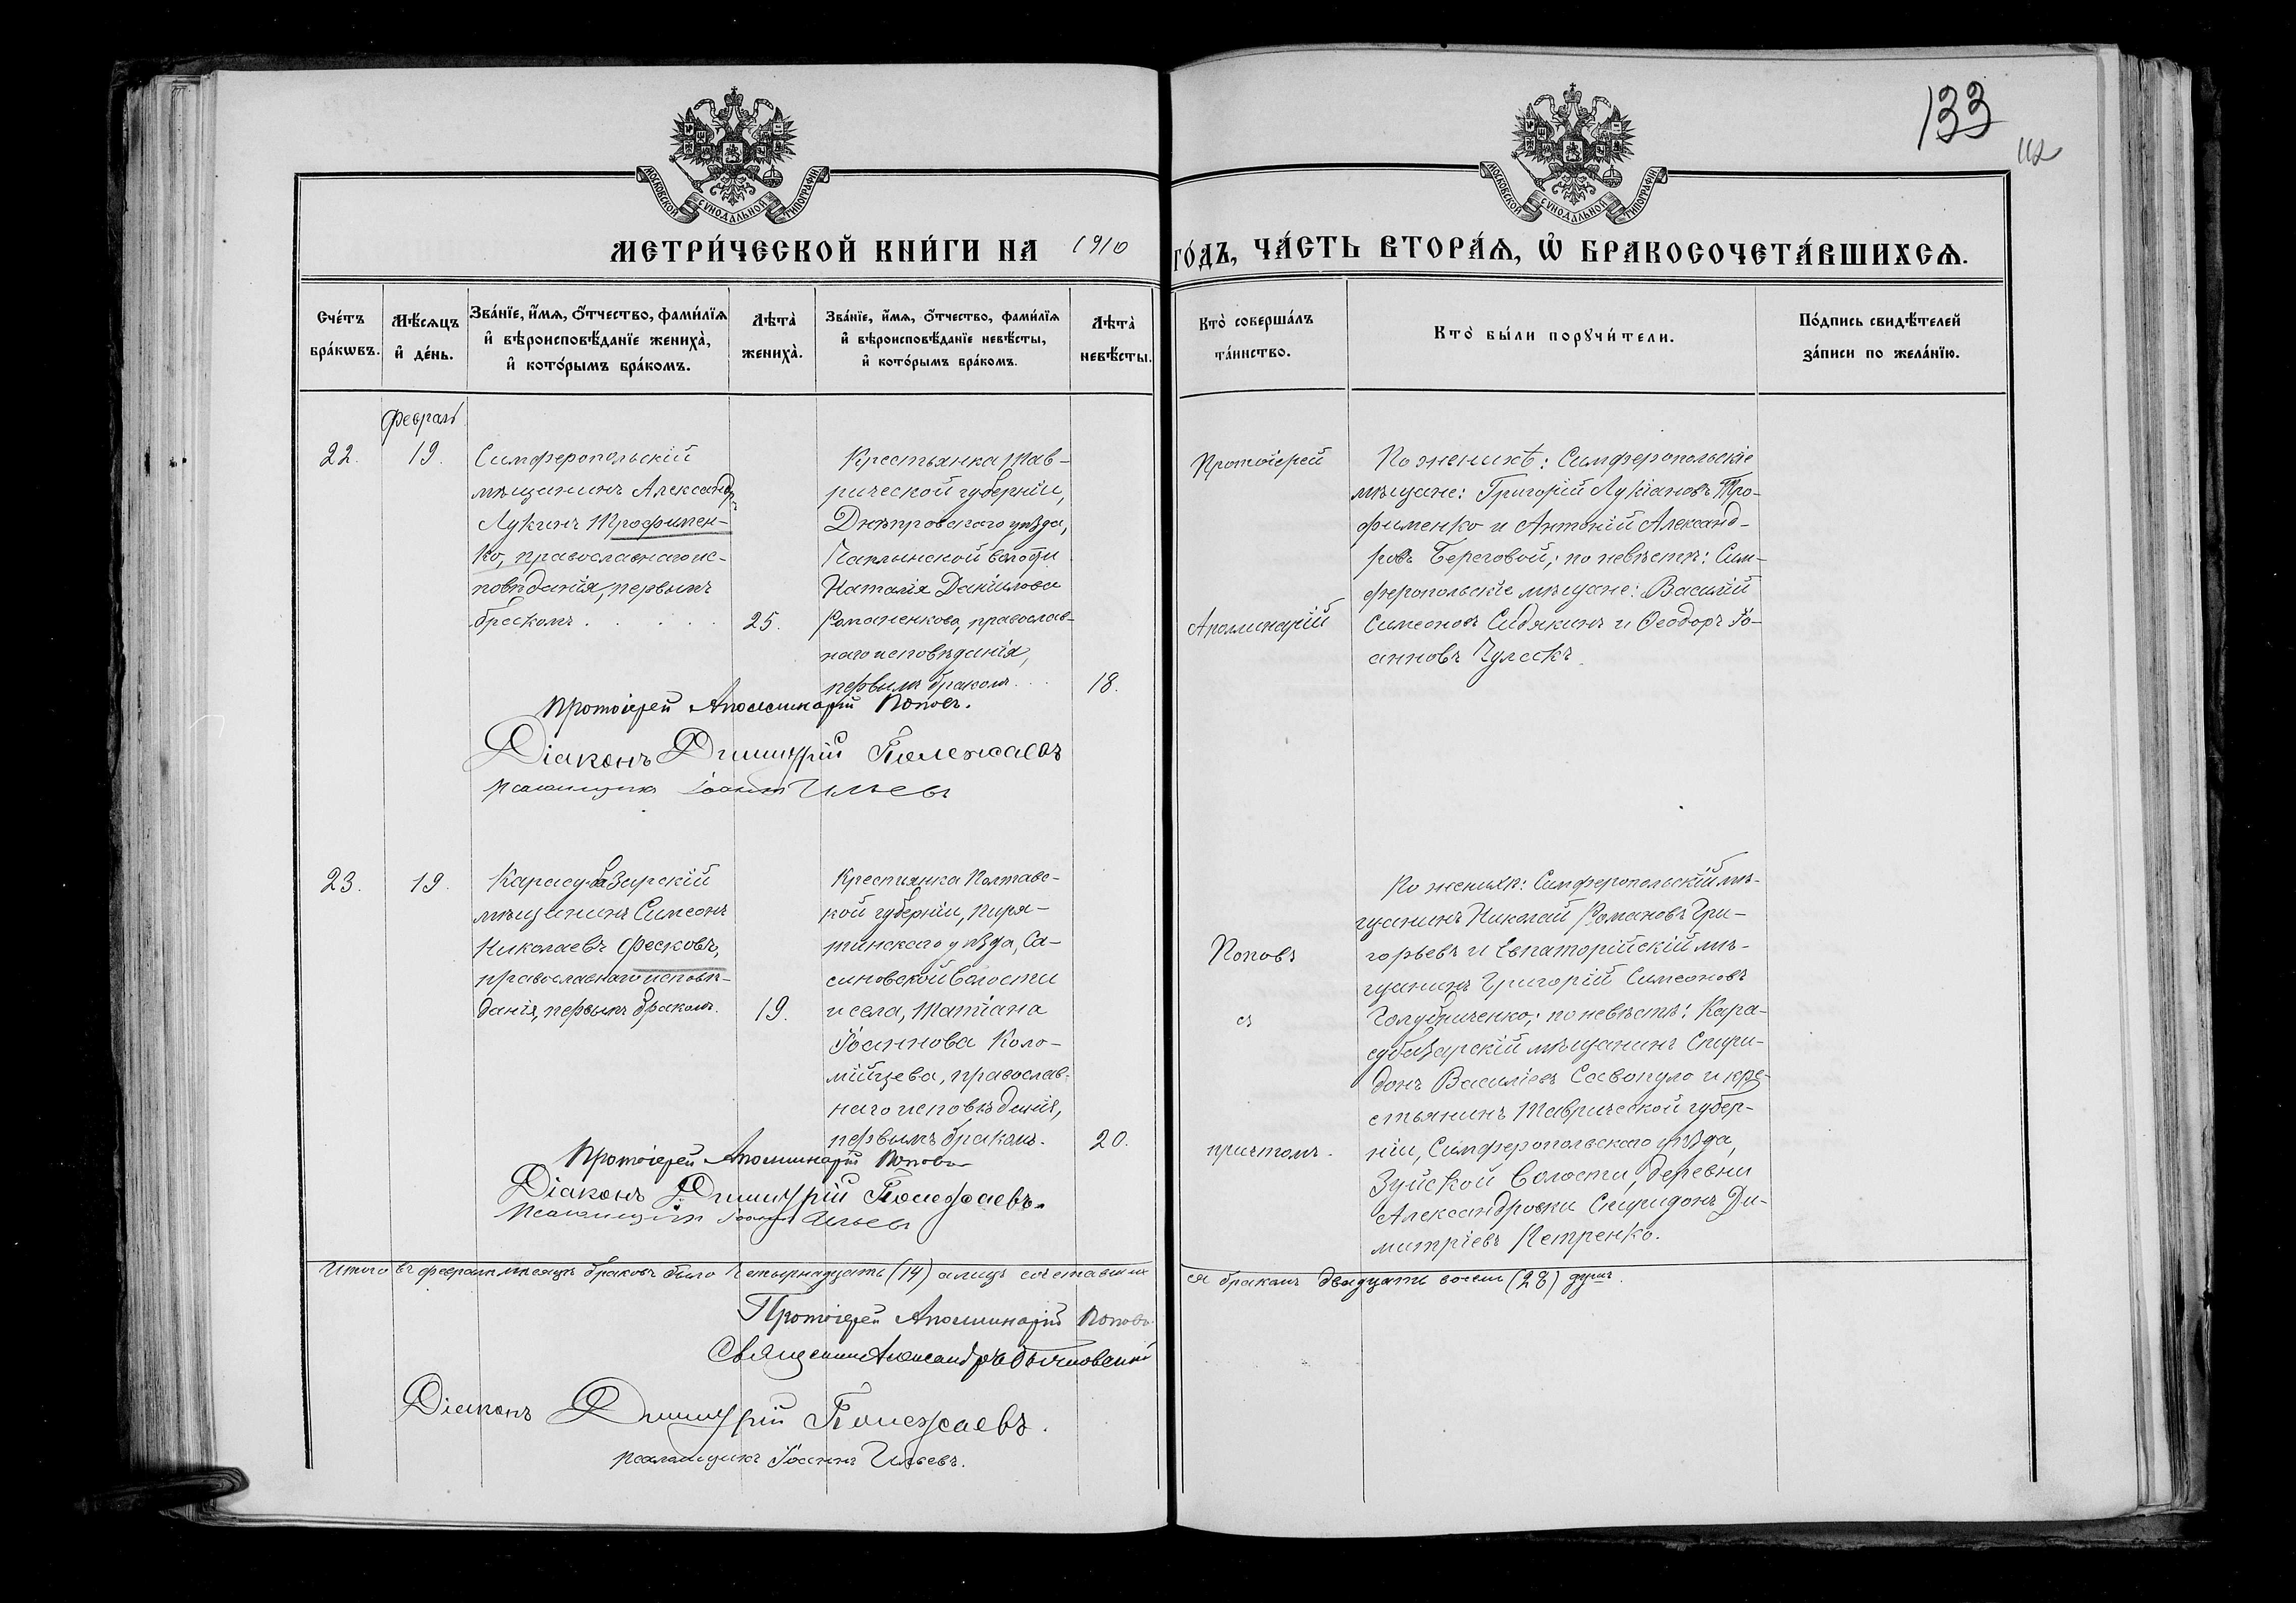 133
112
МОСКОВСКОЙ СУНОДАЛЬНОЙ ТИПОГРАФІИ
МОСКОВСКОЙ СУНОДАЛЬНОЙ ТИПОГРАФІИ
МЕТРИ́ЧЕСКОЙ КНИ́ГИ НА 1910 ГО́ДЪ, ЧА́СТЬ ВТОРА́Ѧ, Ѡ҆ БРАКОСОЧЕТА́ВШИХСѦ.
Сче́тъ
бра́кѡвъ.
Мѣ́сѧцъ
и҆ де́нь.
Зва́нїе, и҆́мѧ, ѻ҆́тчество, фами́лїѧ
и҆ вѣроисповѣ́данїе жениха̀,
и҆ кото́рымъ бра́комъ.
Лѣта̀
жениха̀.
Зва́нїе, и҆́мѧ, ѻ҆́тчество, фами́лїѧ
и҆ вѣроисповѣ́данїе невѣ́сты,
и҆ кото́рымъ бра́комъ.
Лѣта̀
невѣ́сты.
Кто̀ соверша́лъ
та́инство.
Кто̀ бы́ли порꙋчи́тели.
По́дпись свидѣ́телей
за́писи по жела́нїю.
Февраль
22.
19.
Симферопольскій
мѣщанинъ Александръ
Лукинъ Трофимен-
ко, православнаго ис-
повѣданія, первымъ
бракомъ . . . . .
25.
Крестьянка Тав-
рической губерніи,
Днѣпровскаго уѣзда,
Чаплынской волости
Наталія Даніилова
Романенкова, православ-
наго исповѣданія,
первымъ бракомъ . . .
18.
Протоіерей
Аполлинарій
По женихѣ: Симферопольскіе
мѣщане: Григорій Лукіановъ Тро-
фименко и Антоній Александ-
ровъ Береговой; по невѣстѣ: Сим-
феропольскіе мѣщане: Василій
Симеоновъ Сидякинъ и Ѳеодоръ Іо-
анновъ Чулакъ.
Протоіерей Аполлинарій Поповъ.
Діаконъ Димитрій Полежаевъ
Псаломщикъ Іоаннъ Ильевъ
23.
19.
Карасу-базарскій
мѣщанинъ Симеонъ
Николаевъ Фесковъ,
православнаго исповѣ-
данія, первымъ бракомъ.
19.
Крестьянка Полтавс-
кой губерніи, Пиря-
тинскаго уѣзда, Са-
синовской волости
и села, Татіана
Іоаннова Коло-
мійцева, православ-
наго исповѣданія,
первымъ бракомъ.
20.
Поповъ
съ
причтомъ.
По женихѣ: Симферопольскій мѣ-
щанинъ Николай Романовъ Гри-
горьевъ и Евпаторійскій мѣ-
щанинъ Григорій Симеоновъ
Голубниченко; по невѣстѣ: Кара-
субазарскій мѣщанинъ Спири-
донъ Василіевъ Савопуло и кре-
стьянинъ Таврической губер-
ніи, Симферопольскаго уѣзда,
Зуйской волости, деревни
Александровки Спиридонъ Ди-
митріевъ Петренко.
Протоіерей Аполлинарій Поповъ
Діаконъ Димитрій Полежаевъ.
Псаломщикъ Іоаннъ Ильевъ
Итого въ февралѣ мѣсяцѣ браковъ было четырнадцать (14) а лицъ сочетавших
ся бракомъ двадцать восемь (28) душъ.
Протоіерей Аполлинарій Поповъ
Священникъ Александръ
Діаконъ Димитрій Полежаевъ.
Псаломщикъ Іоаннъ Ильевъ.